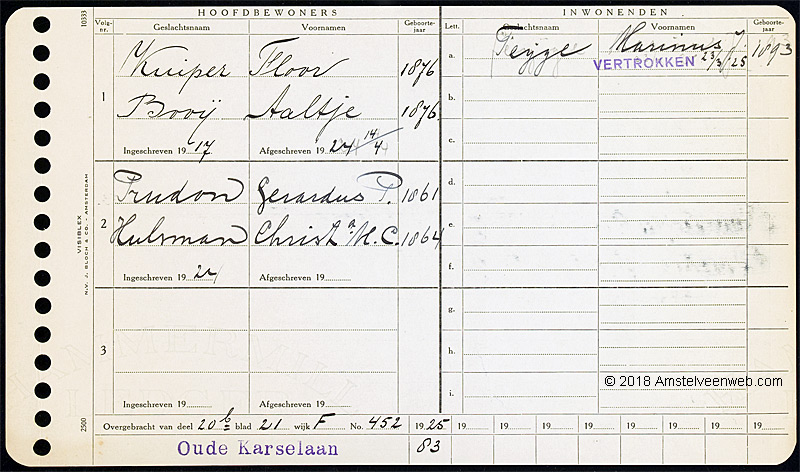 HOOFDBEWONERS
INWONENDEN
10333
Volg-nr.
Geslachtsnaam
Voornamen
Geboorte-jaar
Lett.
Geslachtsnaam
Voornamen
Geboorte-jaar
1
Kuiper Floor 1876
Booij Aaltje 1876
Ingeschreven 1917
Afgeschreven 1924 14/4
2
Prudon Gerardus P. 1861
Hulsman Christa M. C. 1864
Ingeschreven 1924
Afgeschreven 19
3
Ingeschreven 19
Afgeschreven 19
a. Marinus J. 1893
VERTROKKEN 23/3/25
b.
c.
d.
e.
f.
g.
h.
i.
VISIBLEX
N.V. J. BLOCH & CO. - AMSTERDAM
2500
© 2018 Amstelveenweb.com
Overgebracht van deel 20 b blad 21 wijk F No. 452 1925 19 19 19 19 19 19 19 19
Oude Karselaan 83